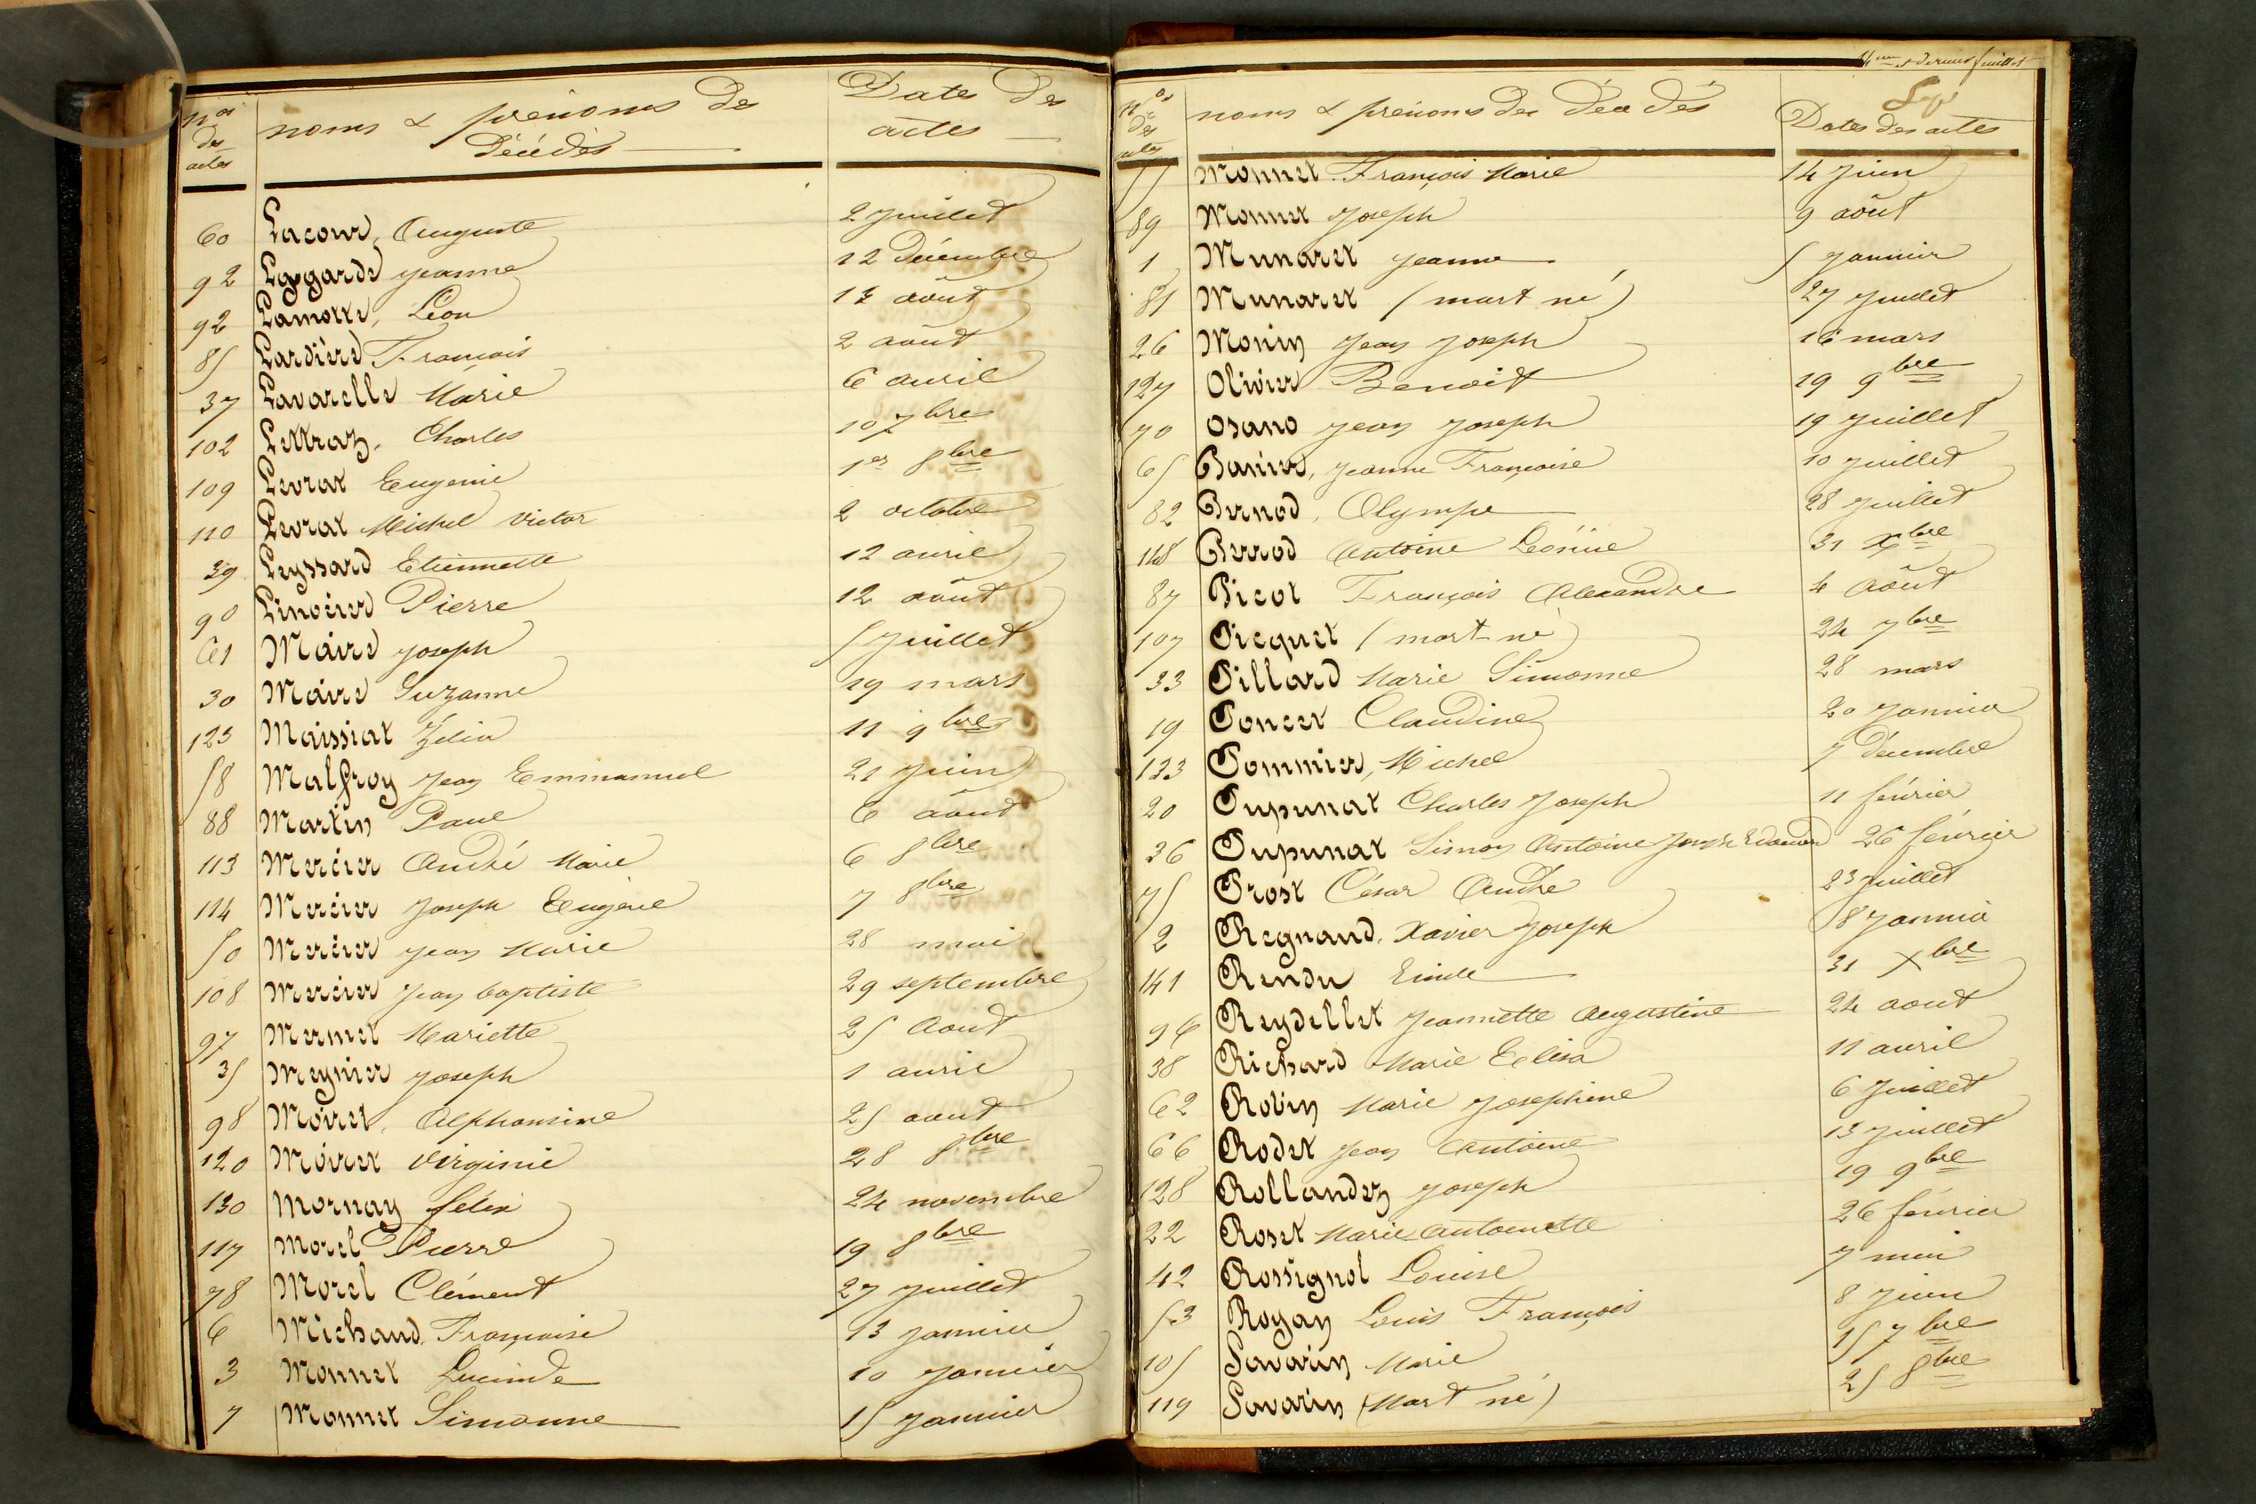 nos des actes | noms & prénoms des Décédés | Dates des actes
60 Lacour, Auguste 2 Juillet
92 Lagarde Jeanne 12 Décembre
92 Lamotte, Léon 12 août
85 Lardière François 2 août
37 Lavarelle Marie 6 avril
102 Lettraz, Charles 10 7bre
109 Levrat Eugenie 1er 8bre
110 Levrat Michel Victor 2 octobre
39 Leyssard Etiennette 12 avril
90 Linoeier Pierre 12 août
61 Maire Joseph 5 Juillet
30 Maire Suzanne 19 mars
123 Maissiat Zélia 11 9bre
58 Malfroy Jean Emmanuel 21 Juin
88 Martin Paul 6 août
113 Mercier André Marie 6 8bre
114 Mercier Joseph Eugène 7 8bre
50 Mercier Jean Marie 28 mai
108 Mercier Jean baptiste 29 septembre
97 Mermet Mariette 25 Aout
35 Meynier Joseph 1 avril
98 Moiret, Alphonsine 25 aout
120 Moiret Virginie 28 8bre
130 Mornay félix 24 novembre
117 Morel Pierre 19 8bre
78 Morel Clément 27 Juillet
6 Michaud Françoise 13 Janvier
3 Monnet Lucinde 10 Janvier
7 Monnet Simonne 15 Janvier
4me et dernier feuillet
nos des actes | noms & prénoms des Décédés | Dates des actes
55 Monnet François Marie 14 Juin
89 Monnet Joseph 9 août
1 Munaret Jeanne 5 Janvier
81 Munaret (mort né) 27 Juillet
26 Monin Jean Joseph 16 mars
127 Olivier Benoit 19 9bre
70 Osano Jean Joseph 19 Juillet
65 Panier, Jeanne Françoise 10 Juillet
82 Pernod, Olympe 28 Juillet
148 Perrod Antoine Léonie 31 Xbre
87 Picot François Alexandre 4 Août
107 Picquet (mort né) 24 7bre
33 Pillard Marie Simonne 28 mars
19 Poncet Claudine 20 Janvier
133 Pommier, Michel 7 Décembre
20 Pupunat Charles Joseph 11 février
26 Pupunat Simon Antoine Joseph Edouard 26 février
75 Prost César André 23 Juillet
2 Regnaud, Xavier Joseph 8 Janvier
141 Rendu Emile 31 Xbre
96 Reydellet Jeannette Augustine 24 aout
38 Richard Marie Elisa 11 avril
62 Robin Marie Josephine 6 Juillet
66 Rodet Jean Antoine 13 Juillet
128 Rollandez Joseph 19 9bre
22 Roset Marie Antoinette 26 février
42 Rossignol Louise 7 mai
53 Royan Louis François 8 Juin
105 Savarin Marie 15 7bre
119 Savarin (Mort né) 25 8bre